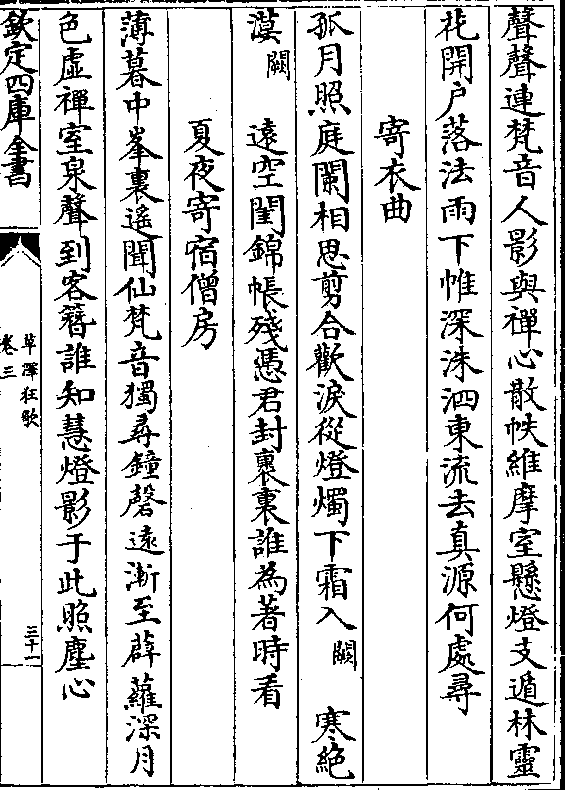 聲聲連梵音人影與禪心散帙維摩室懸燈支遁林靈
花開户落法雨下帷深洙泗東流去真源何處尋
寄衣曲
孤月照庭闌相思剪合歡淚從燈燭下霜入闕寒絶
漠闕遠空閨錦帳殘憑君封裹裏誰為著時看
夏夜寄宿僧房
薄暮中峯裏遙聞仙梵音獨尋鐘磬遠漸至薜蘿深月
色虛禪室泉聲到客簪誰知慧燈影于此照塵心
欽定四庫全書
草澤狂歌
卷三
三十一